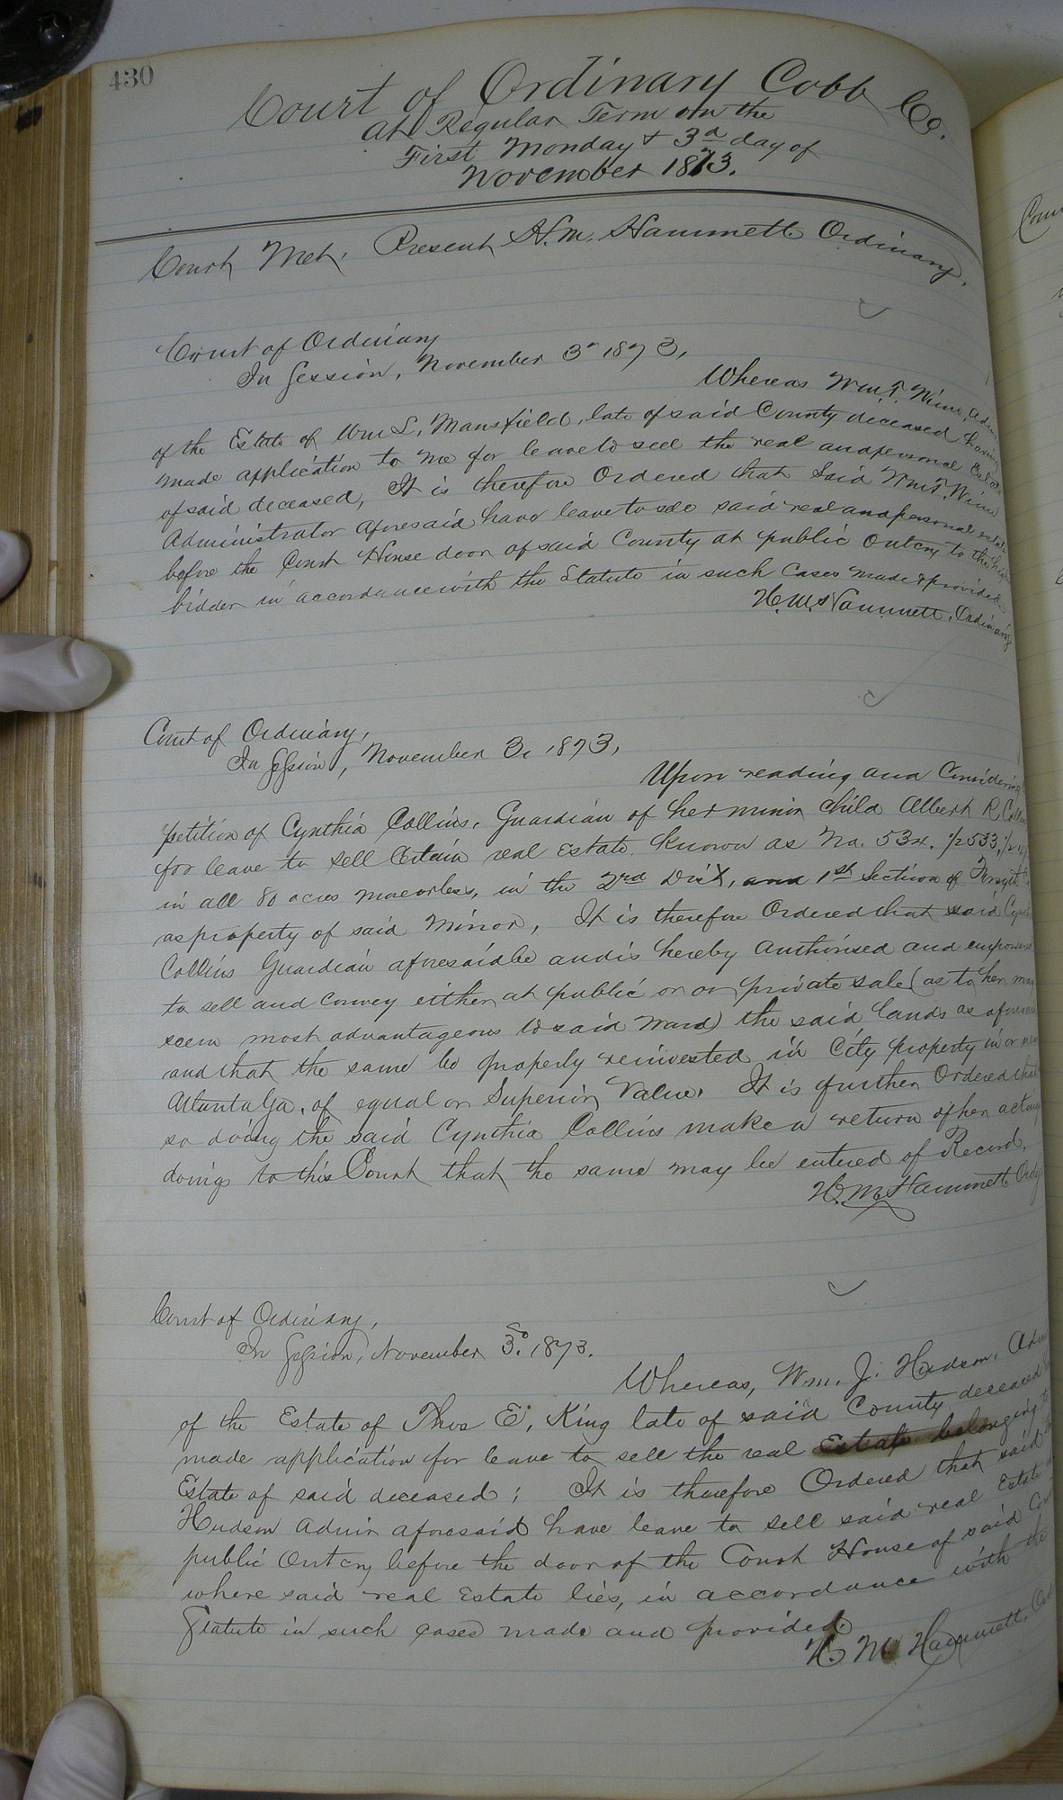 430
Court of Ordinary Cobb Co.
At Regular Term on the
First Monday & 3d day of
November 1873.
Court Met, Present H. M. Hammett Ordinary.
Court of Ordinary
In Session, November 3d 1873,
Whereas Wm. T. Winn, Admr
of the Estate of Wm L. Mansfield, late of said County deceased having
made application to me for leave to sell the real and personal Estate
of said deceased, It is therefore Ordered that Said Wm T. Winn
Administrator aforesaid have leave to sell said real and personal estate
before the Court House door of said County at public Outcry to the high
bidder in accordance with the Statute in such Cases made & provided
H. M. Hammett, Ordinary
Court of Ordinary,
In Session, November 3, 1873,
Upon reading and Considering
petition of Cynthia Collins, Guardian of her minor child Albert R. Collins
for leave to sell Certain real Estate Known as No. 534. 1/2 533,
in all 80 acres more or less, in the 2nd Dist, and 1st Section of Forsyth
as property of said Minor, It is therefore Ordered that said
Collins Guardian aforesaid be and is hereby Authorised and empowered
to sell and Convey either at public or or private sale (as to her may
seem most advantageous to said ward) the said lands as aforesaid
and that the same be properly reinvested in City property in or near
Atlanta Ga. of equal or Superior Value. It is further Ordered that
so doing the said Cynthia Collins make a return of her actings
doings to this Court that the same may be entered of Record.
H. M. Hammett Ordy
Court of Ordinary,
In Session, November 3d. 1873.
Whereas, Wm. J. Hudson, Adm
of the Estate of Thos E. King late of said County deceased
made application for leave to sell the real Estate belonging to
Estate of said deceased; It is therefore Ordered that said
Hudson Admr aforesaid have leave to sell said real Estate
public Outcry before the door of the Court House of said
where said real Estate lies, in accordance with the
Statute in such cases made and provided
H M Hammett